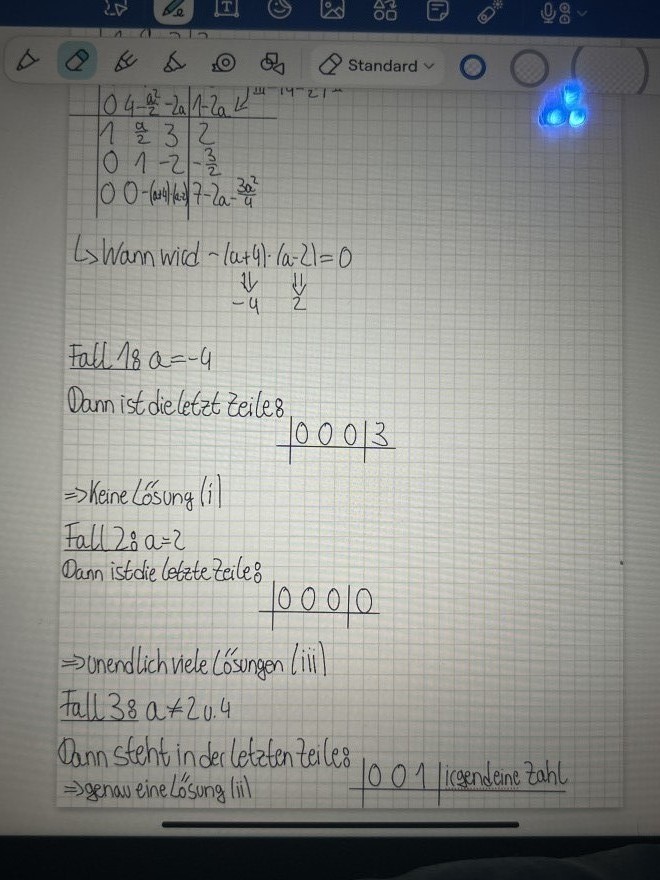 Standard
0 4-a²/2 -2a | 1-2a
1 a/2 3 | 2
0 1 -2 | -3/2
0 0 -(a+4)·(a-2) | 7-2a-3a²/4
↳ Wann wird -(a+4)·(a-2)=0
⇓ ⇓
-4 2
Fall 1: a=-4
Dann ist die letzt Zeile:
|0 0 0|3
=> Keine Lösung (i)
Fall 2: a=2
Dann ist die letzte Zeile:
|0 0 0|0
=> unendlich viele Lösungen (iii)
Fall 3: a≠2 u. 4
Dann steht in der letzten Zeile:
|0 0 1|irgendeine Zahl
=> genau eine Lösung (ii)